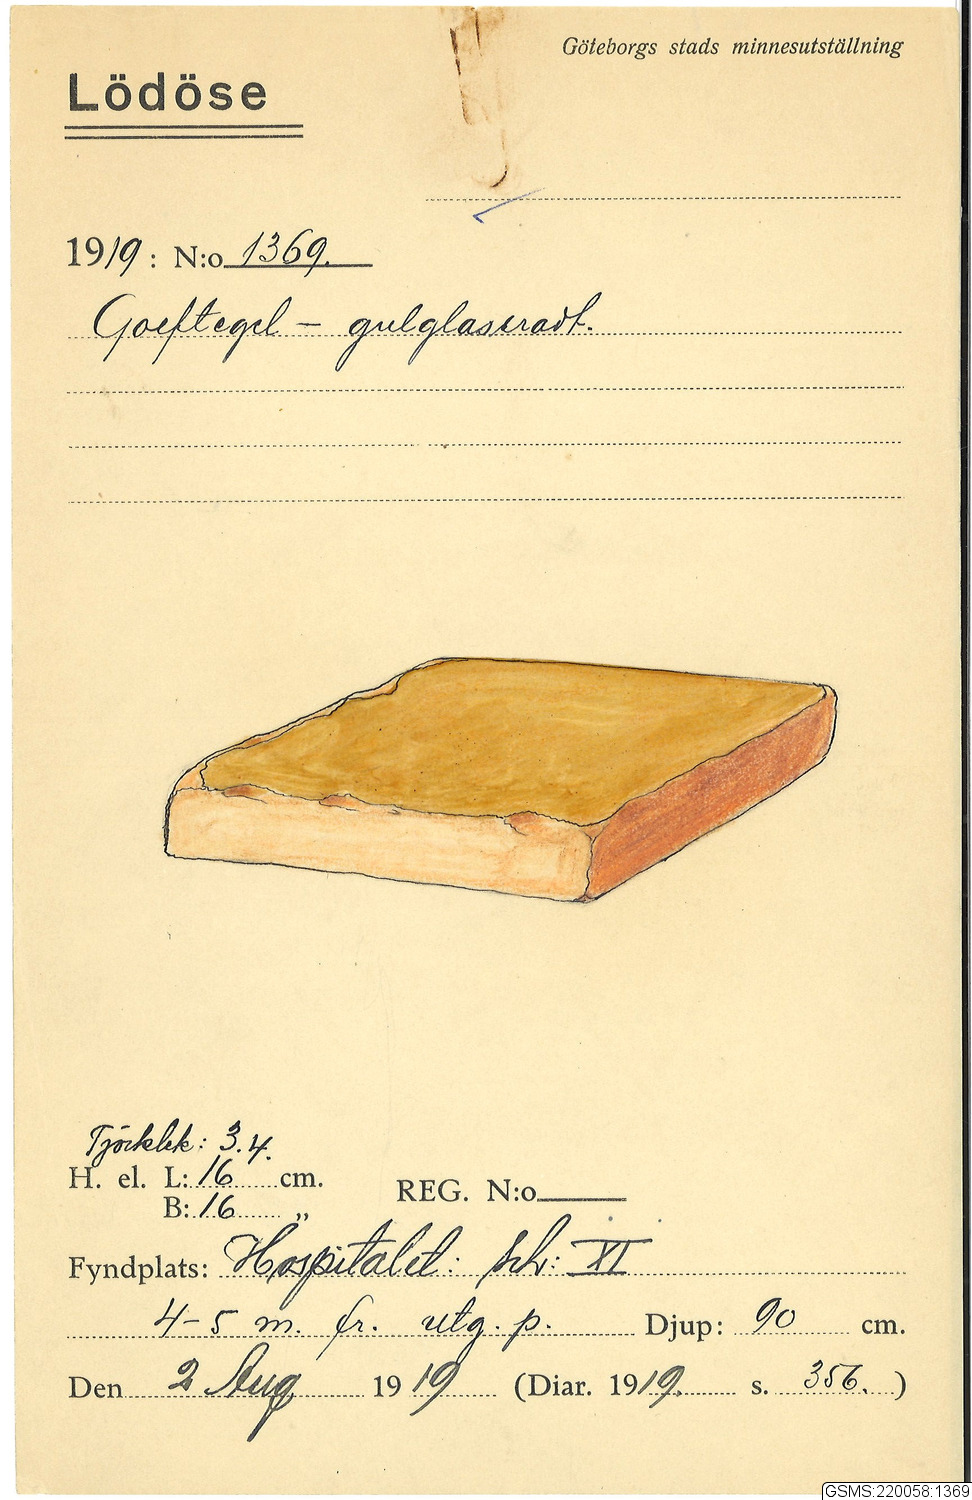 Göteborgs stads minnesutställning
Lödöse
1919: N:o 1369.
Golftegel – gulglaseradt.
Tjocklek: 3.4.
H. el. L: 16 cm.
B: 16 „
REG. N:o
Fyndplats: Hospitalet: sch: XI
4–5 m. fr. utg. p. Djup: 90 cm.
Den 2 Aug 1919 (Diar. 1919. s. 356.)
GSMS:220058:1369